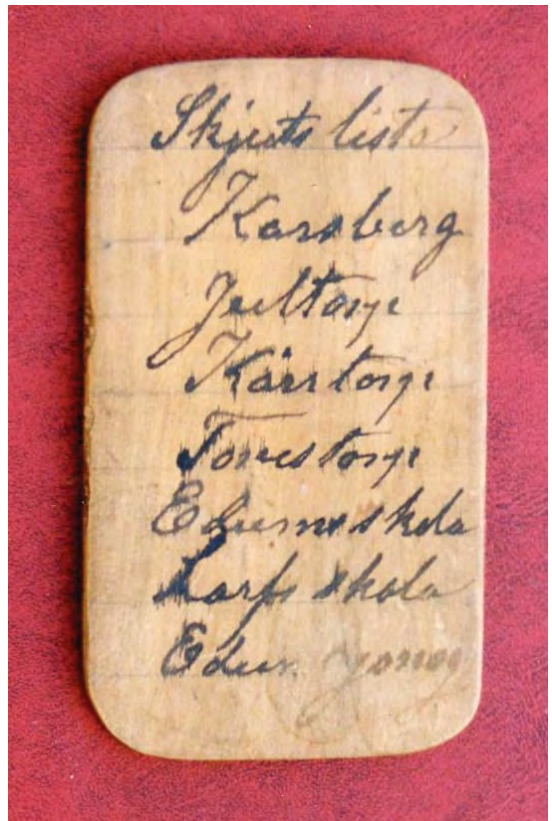 Skjuts lista
Karsberg
Jultorp
Kårstorp
Torestorp
Edums skola
Larfs skola
Edum